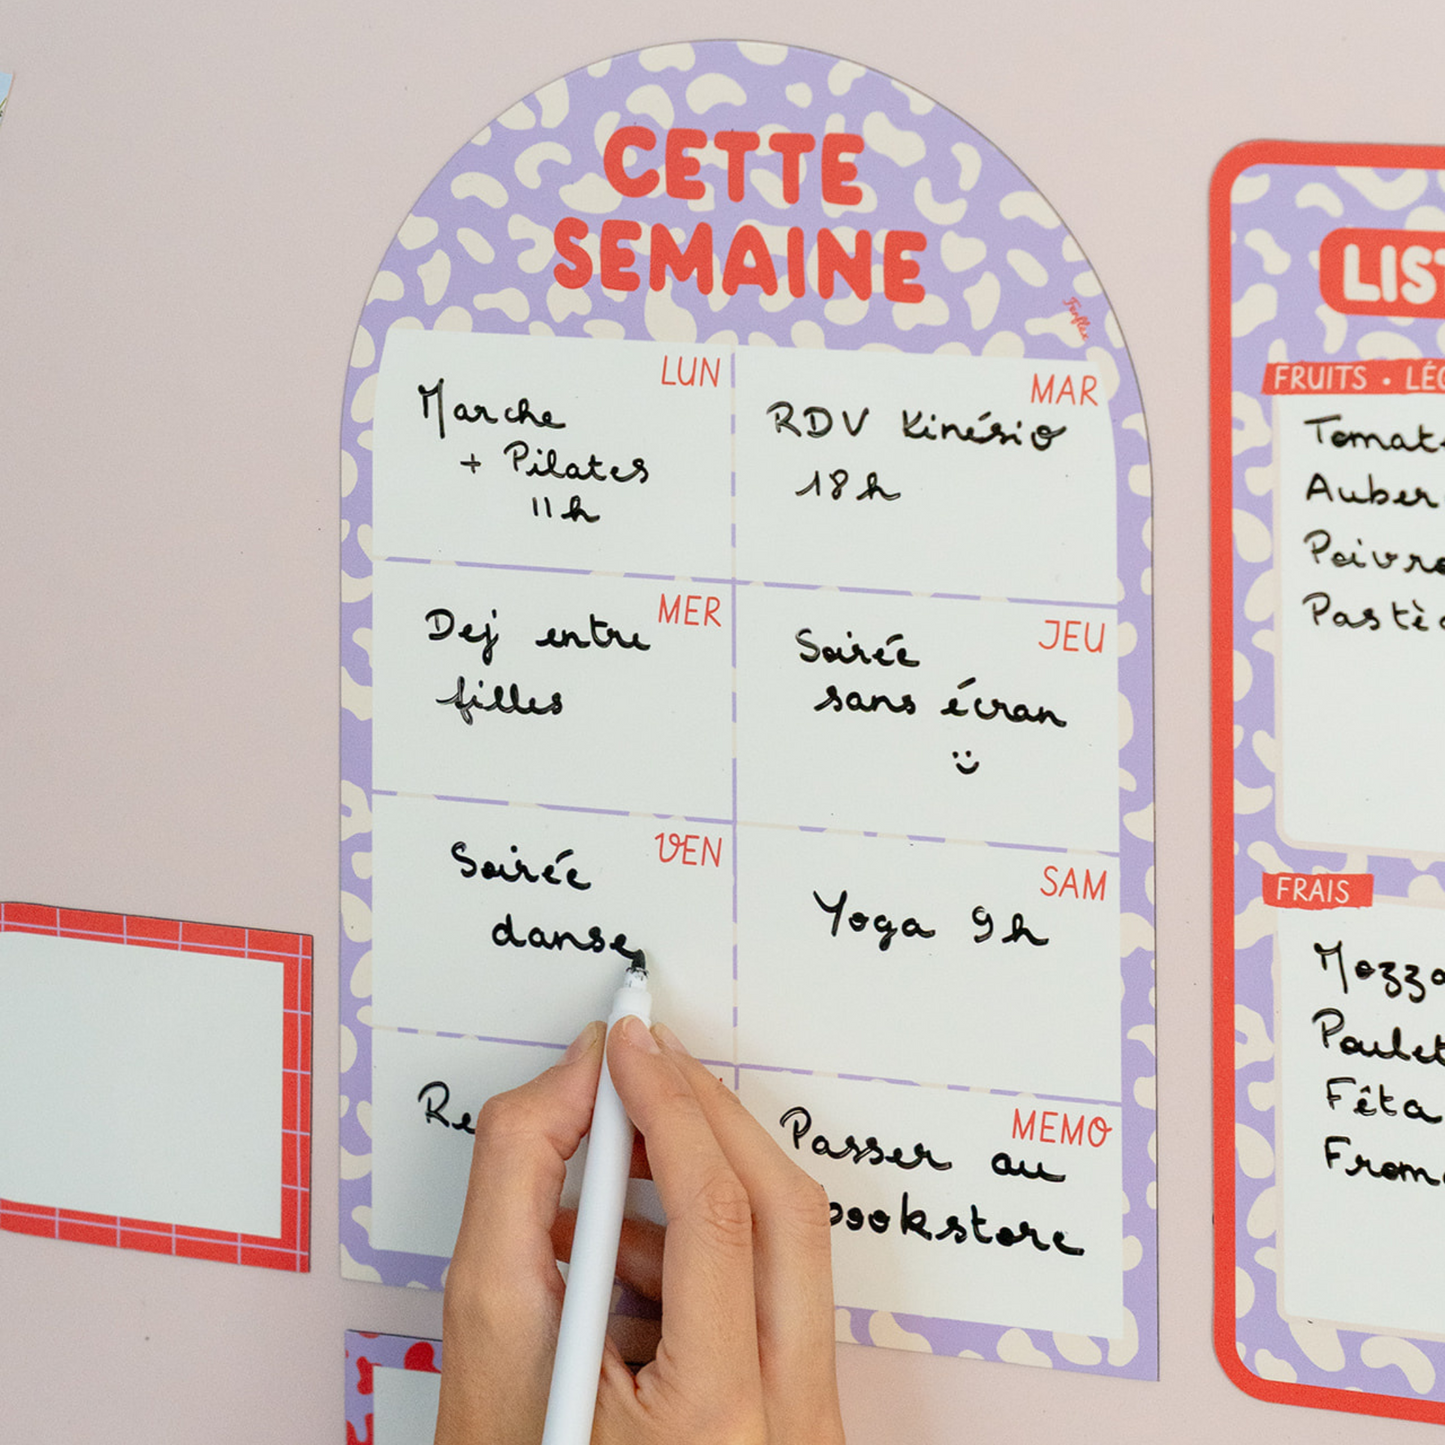 CETTE
SEMAINE
Ferflex
LUN
Marche
+ Pilates
11h
MAR
RDV Kinésio
18h
MER
Dej entre
filles
JEU
Soirée
sans écran
VEN
Soirée
danse
SAM
Yoga 9h
Re
MEMO
Passer au
bookstore
LIST
FRUITS • LÉG
Tomat
Auber
Poivro
Pastè
FRAIS
Mozza
Poulet
Fêta
From